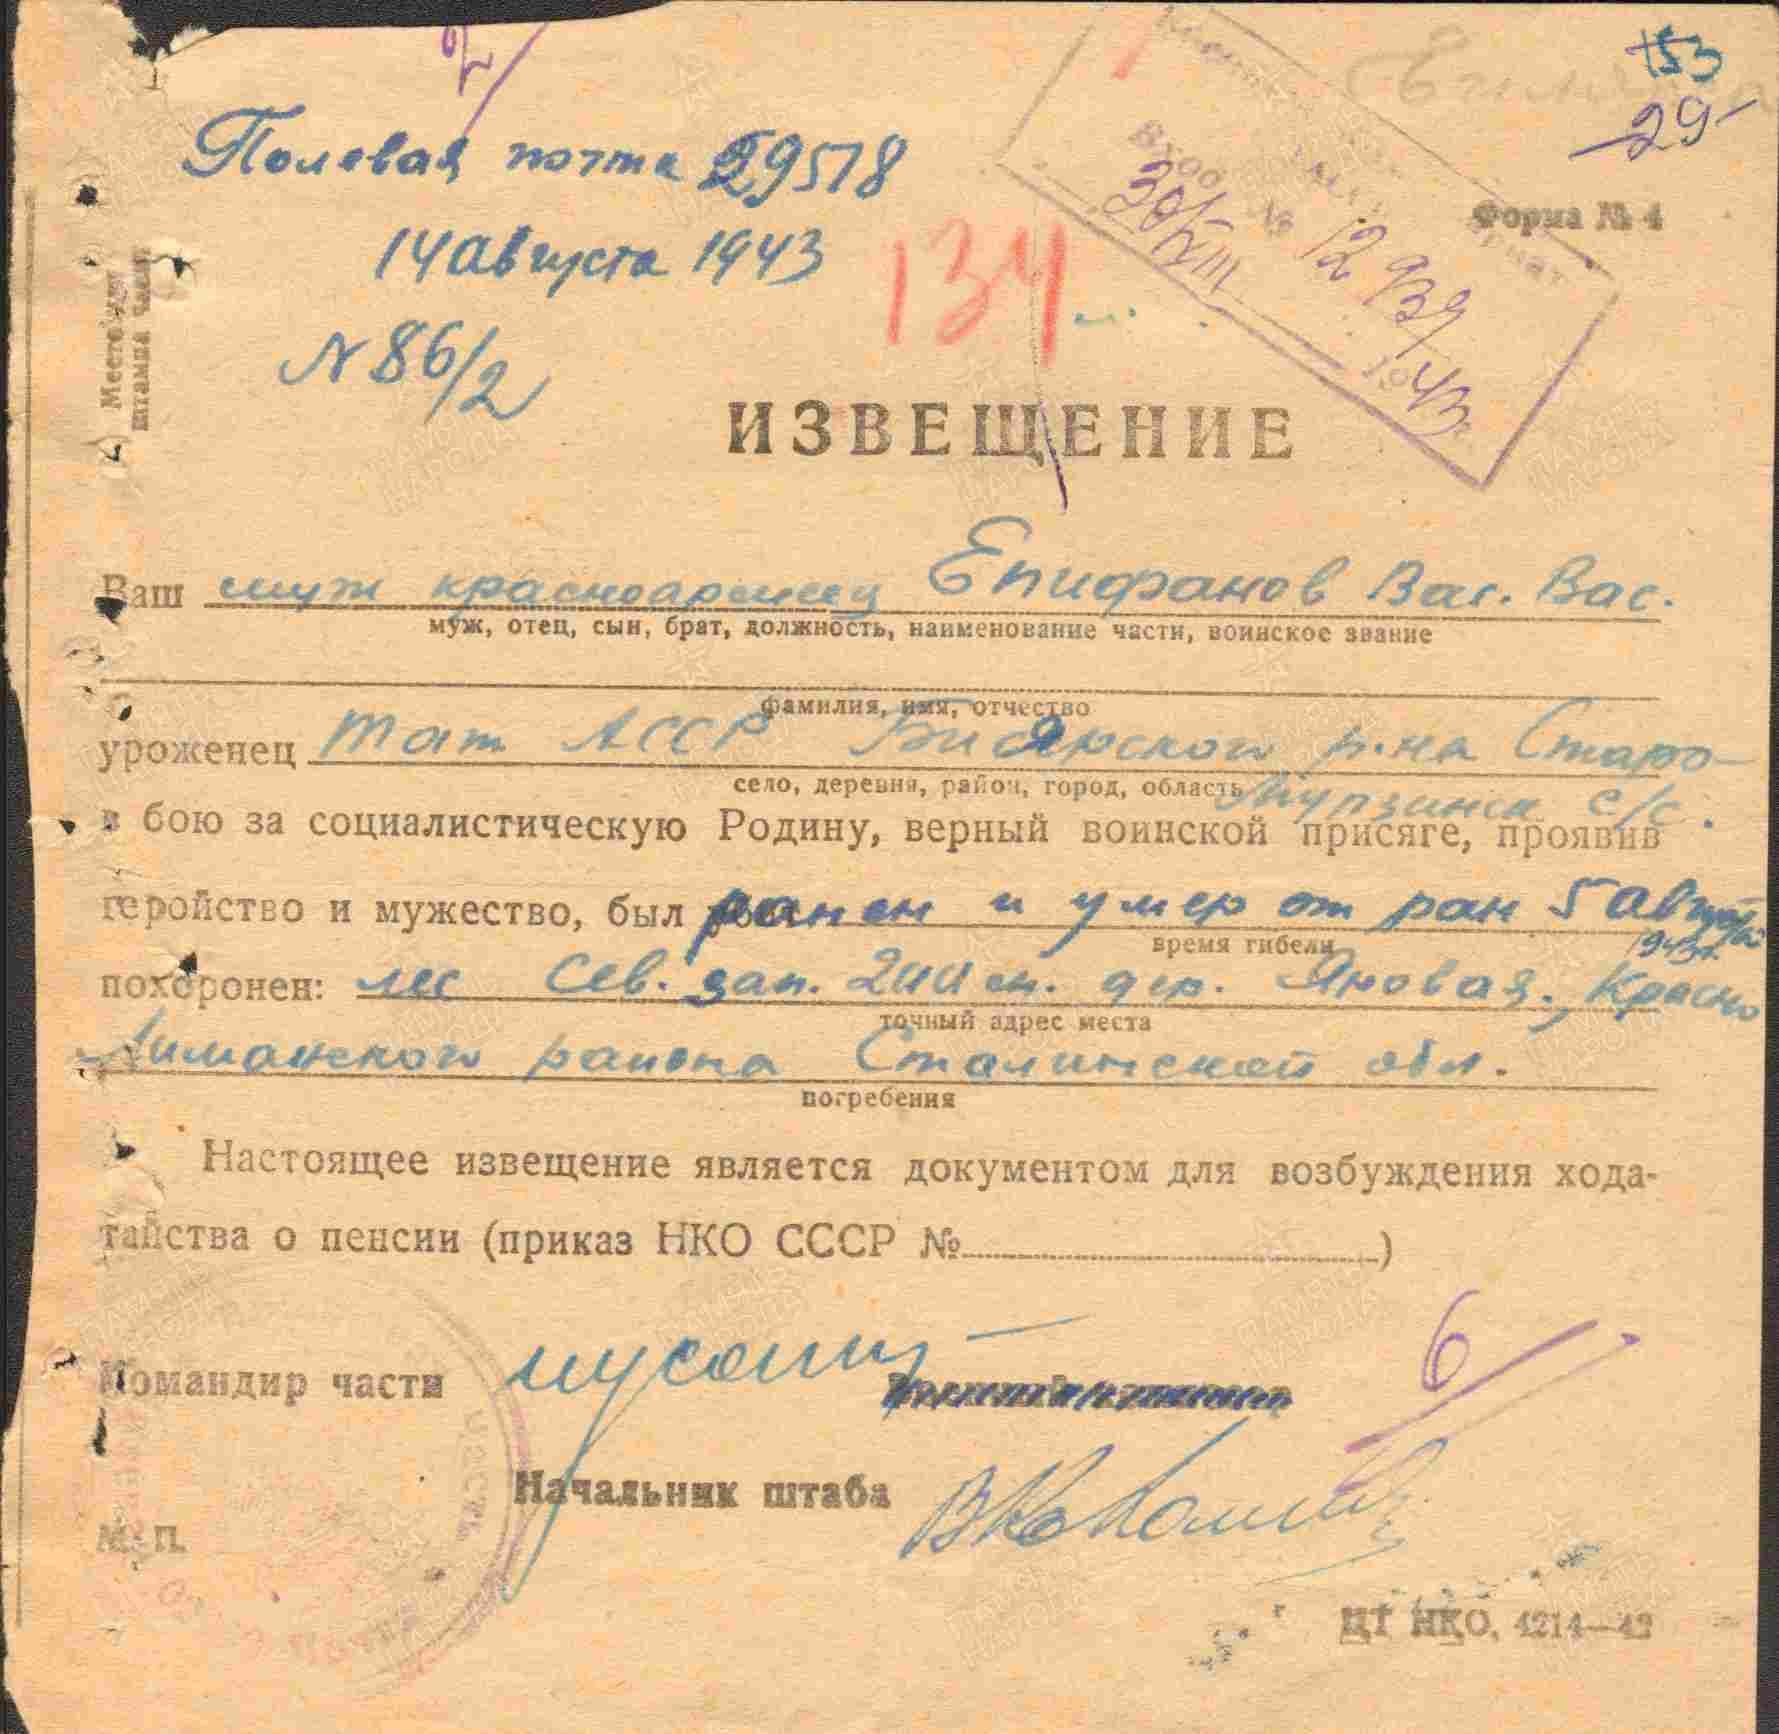 2/
153
29
Полевая почта 29578
Форма № 4
14 августа 1943
134
30/VIII
12939
1943
N 86/2
Место для
штампа части
ИЗВЕЩЕНИЕ
Ваш муж красноармеец Епифанов Вас. Вас.
муж, отец, сын, брат, должность, наименование части, воинское звание
фамилия, имя, отчество
уроженец Тат АССР Билярского р-на Старо-
село, деревня, район, город, область
с/с.
в бою за социалистическую Родину, верный воинской присяге, проявив
геройство и мужество, был ранен и умер от ран 5 августа
время гибели
1943г.
похоронен: лес Сев. зап. дер. Яновая, Красно
точный адрес места
Лиманского района Сталинской обл.
погребения
Настоящее извещение является документом для возбуждения хода-
тайства о пенсии (приказ НКО СССР № )
6/
Командир части
Начальник штаба
часть
М. П.
ЦТ НКО. 4214—42
ПАМЯТЬ
НАРОДА